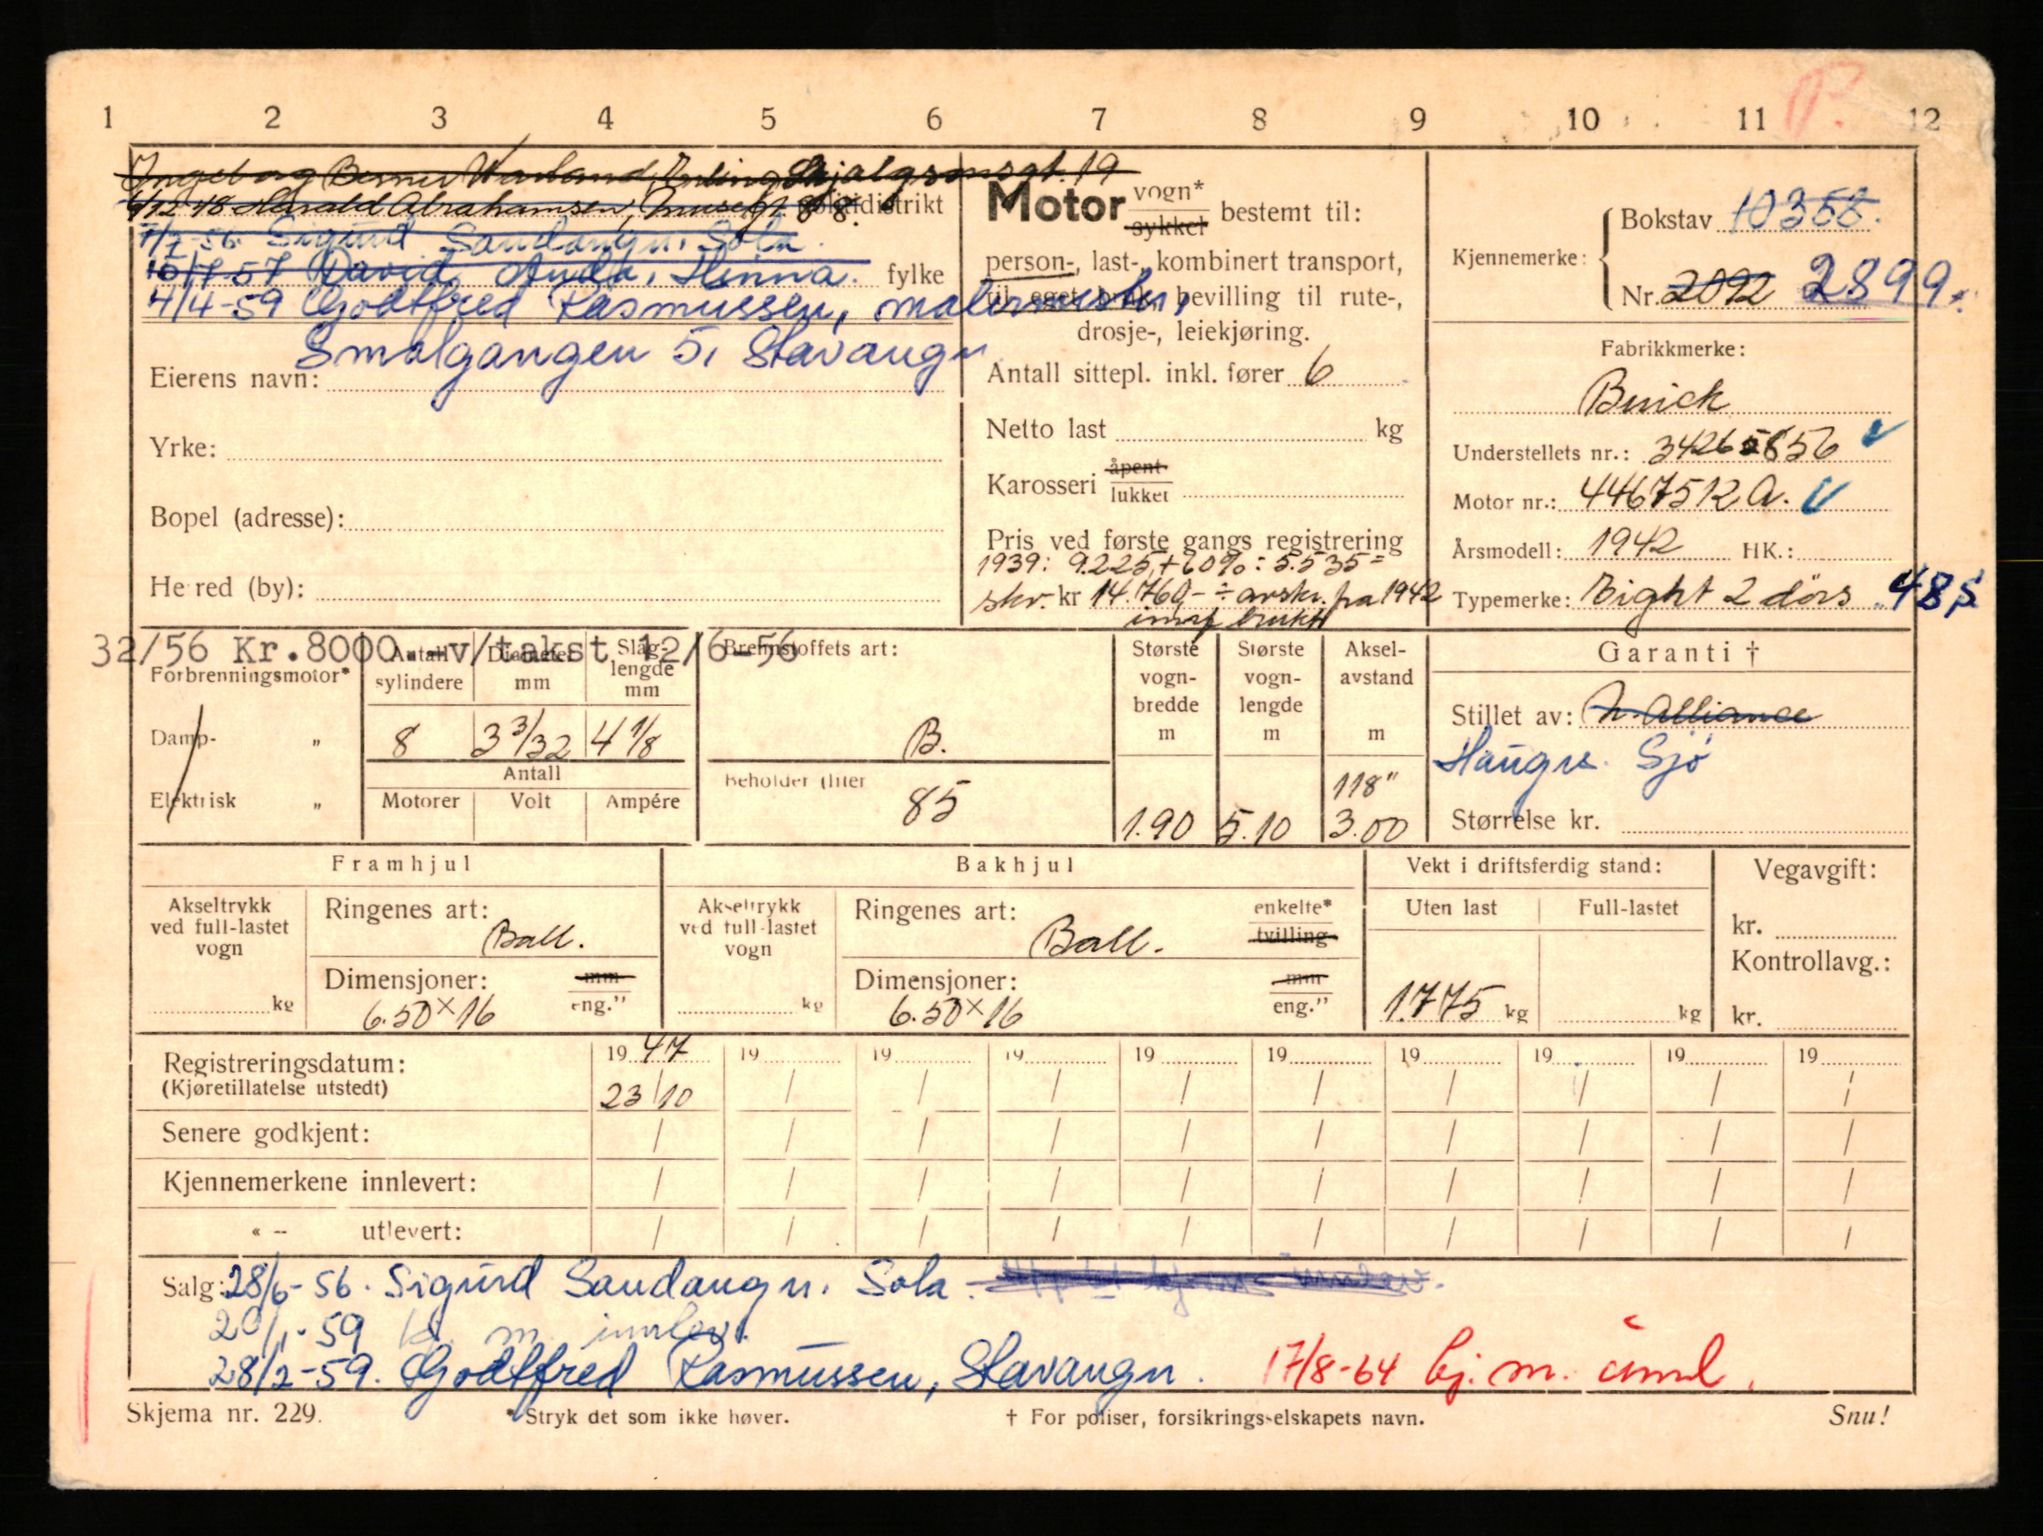 1 2 3 4 5 6 7 8 9 10 11 12
Ingeborg Berner Warland, Erling Skjalgsonsgt. 19
9/12 48 Harald Abrahamsen, Musegt. 88. politidistrikt
7/7-56. Sigurd Sandanger, Sola.
16/7-57 David Auda, Hinna. fylke
4/4-59 Godtfred Rasmussen, malermester,
Smalgangen 5, Stavanger
Eierens navn:
Yrke:
Bopel (adresse):
Herred (by):
Motor vogn* sykkel bestemt til:
person-, last-, kombinert transport,
til eget bruk, bevilling til rute-,
drosje-, leiekjøring.
Antall sittepl. inkl. fører 6
Netto last kg
Karosseri åpent lukket
Pris ved første gangs registrering
1939: 9.225,+60%: 5.535=
skr. kr 14.760,- ÷ avskr. fra 1942
imp brukt
Kjennemerke: Bokstav 10358.
Nr. 2092 2899.
Fabrikkmerke:
Buick
Understellets nr.: 34265856
Motor nr.: 4467512 A.
Årsmodell: 1942 HK.:
Typemerke: Eight 2 dørs 48 S
32/56 Kr.8000.-v/takst 12/6-56
Forbrenningsmotor* Antall sylindere Diameter mm Slaglengde mm
Damp- „ 8 3 3/32 4 1/8
Antall
Elektrisk „ Motorer Volt Ampére
Brennstoffets art:
B.
Beholder (liter
85
Største vognbredde m 1.90
Største vognlengde m 5.10
Akselavstand m 118" 3.00
Garanti †
Stillet av: N. Alliance
Haugs. Sjø
Størrelse kr.
Framhjul
Akseltrykk ved full-lastet vogn kg
Ringenes art: Ball.
Dimensjoner: mm eng."
6.50×16
Bakhjul
Akseltrykk ved full-lastet vogn kg
Ringenes art: enkelte* tvilling
Ball.
Dimensjoner: mm eng."
6.50×16
Vekt i driftsferdig stand:
Uten last Full-lastet
1.775 kg kg
Vegavgift:
kr.
Kontrollavg.:
kr.
Registreringsdatum: 19 47 19 19 19 19 19 19 19 19 19
(Kjøretillatelse utstedt) 23/10 / / / / / / / / /
Senere godkjent: / / / / / / / / / /
Kjennemerkene innlevert: / / / / / / / / / /
« – utlevert: / / / / / / / / / /
Salg: 28/6-56. Sigurd Sandanger, Sola.
20/1-59 kj. m. innlev.
28/2-59. Godtfred Rasmussen, Stavanger. 17/8-64 kj. m. innl.
Skjema nr. 229. * Stryk det som ikke høver. † For poliser, forsikringsselskapets navn. Snu!